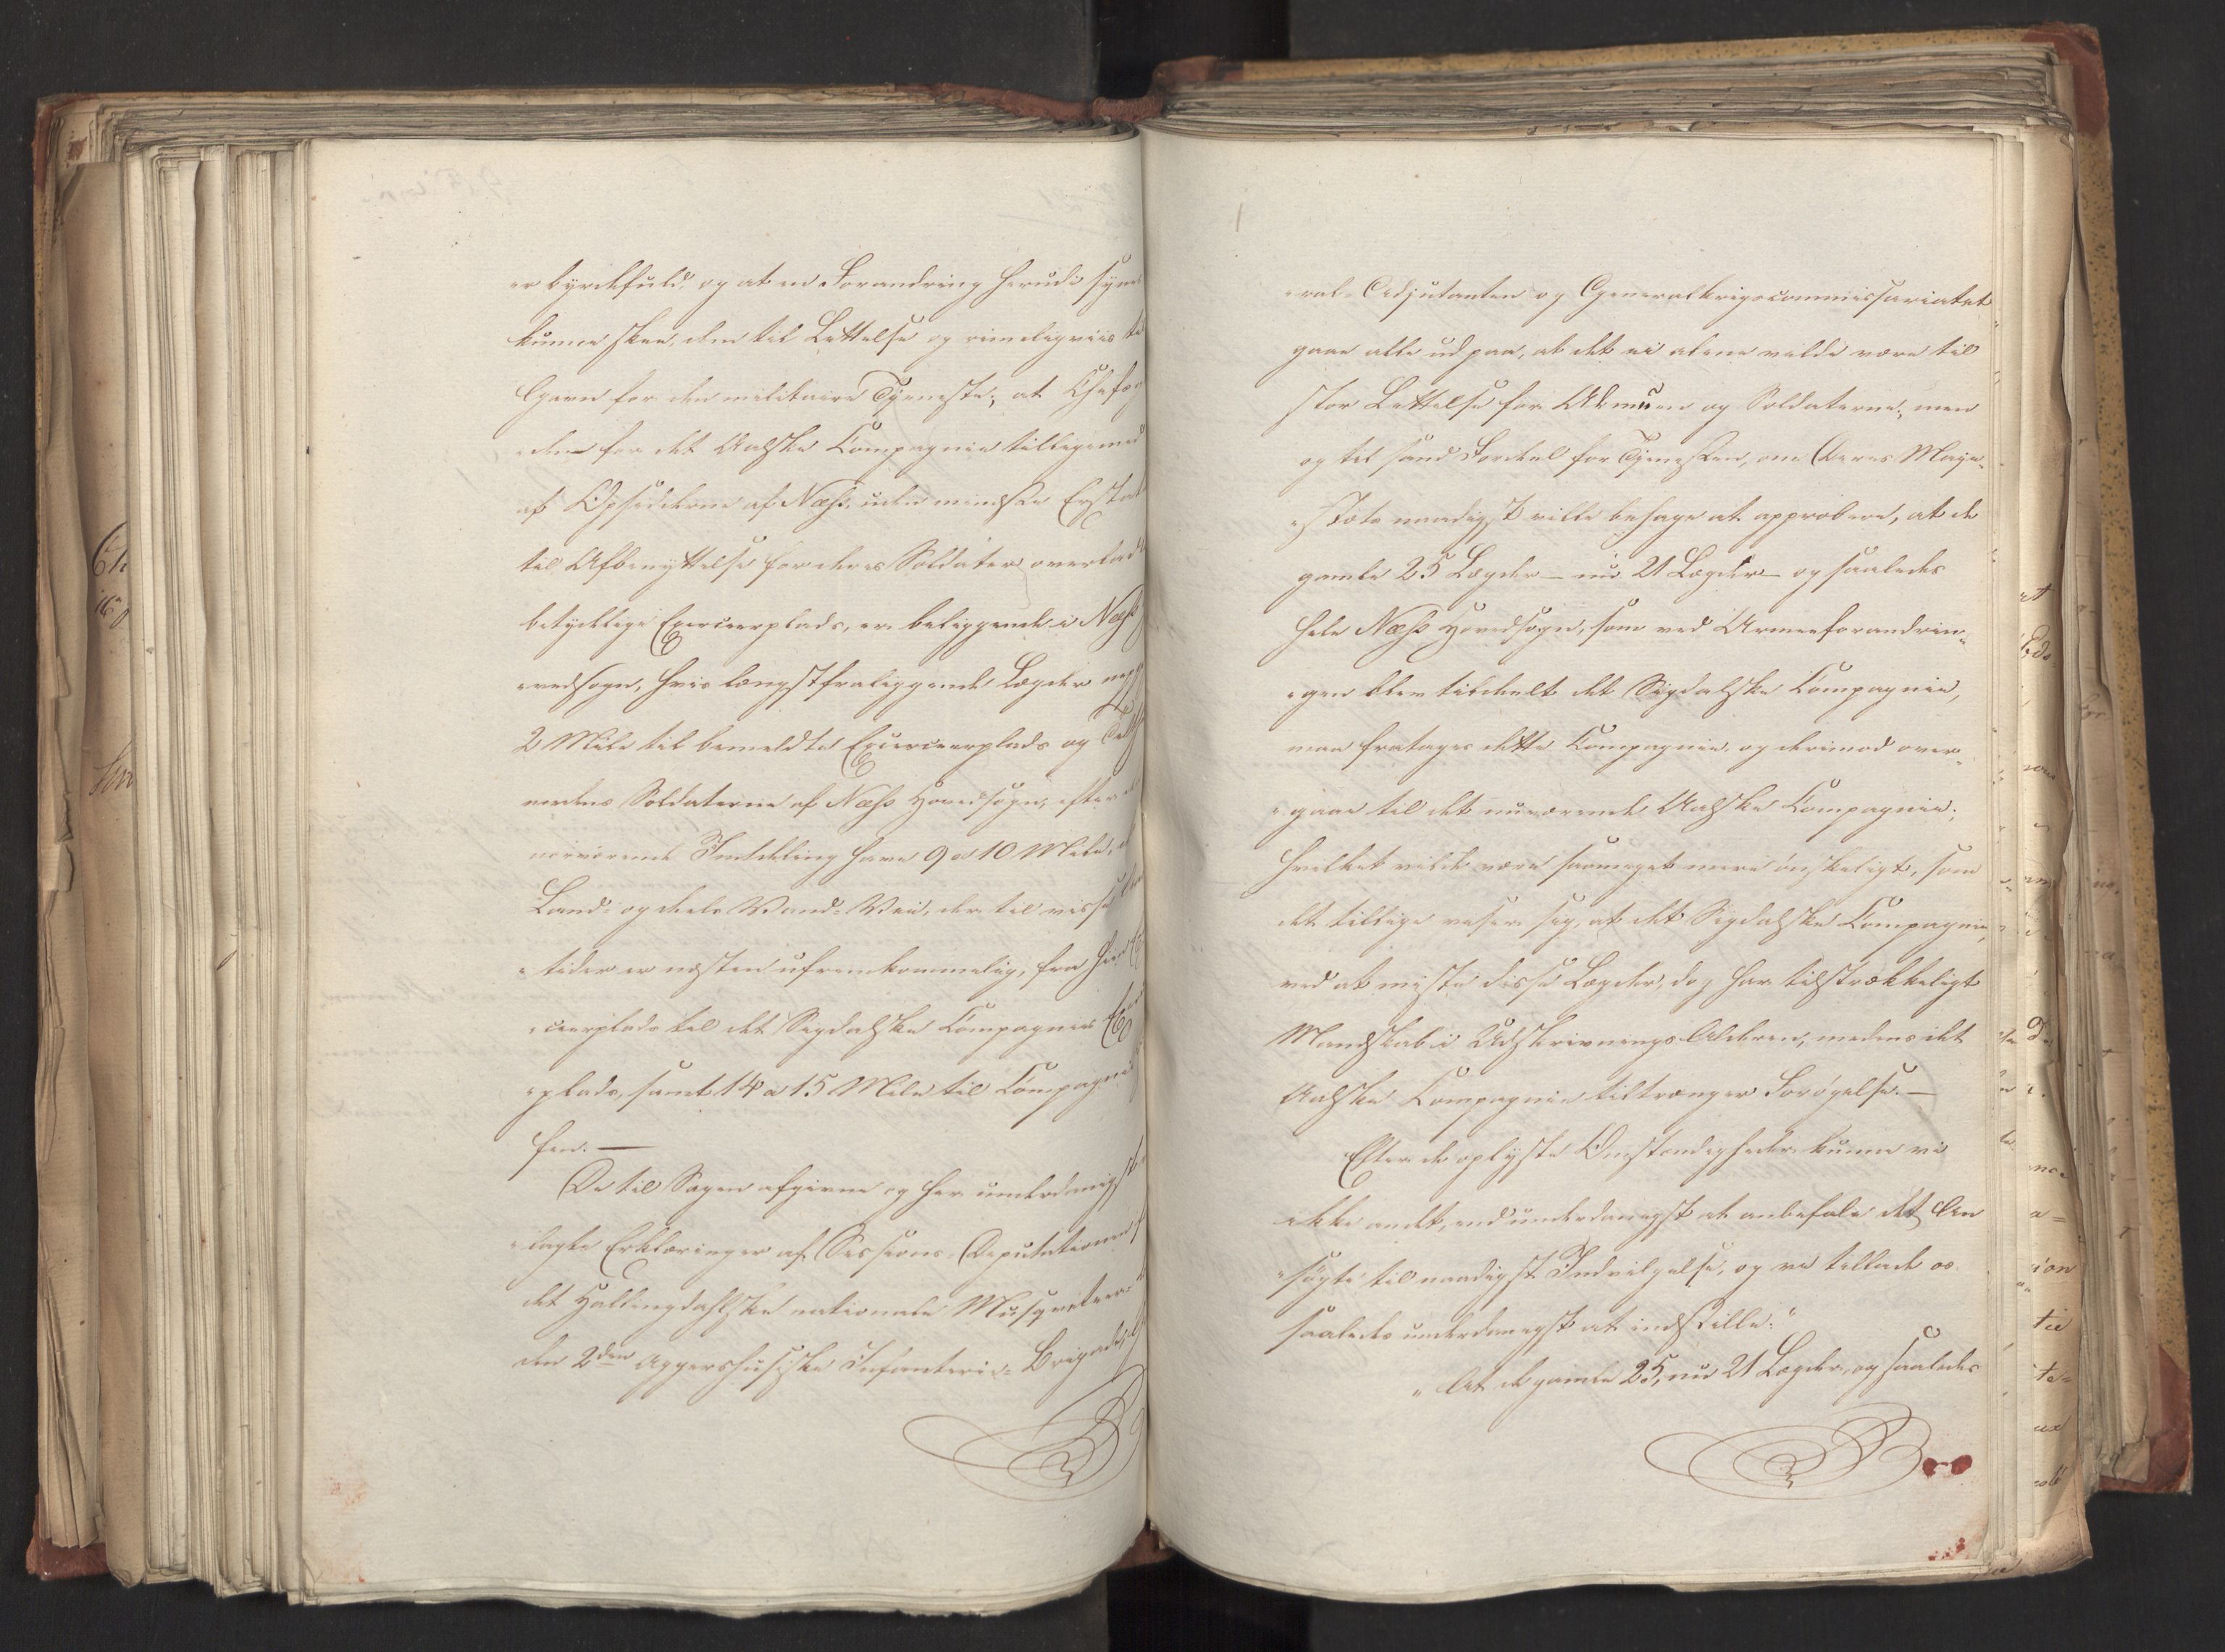 er byrdefuld, og at en Forandring herudi syne
kunne skee, der til Lettelse og rimeligviis
Gavn for den militaire Tjeneste; at
den for det Aalske Compagnie tilligemed
af Opsidderne af Næss, uden mindste Erstat
til Afbenyttelse for deres Soldater overlad
betydelige Exerceerplads, er beliggende i Næss
vedsogn, hvis længstfraliggende Lægder
2 Mile til bemeldte Exerceerplads og
medens Soldaterne af Næss Hovedsogn, efter
nærværende Inddeling have 9 a 10 Mile,
Land- og deels Vand-Vei, der til visse
tider er næsten ufremkommelig, fra
ceerplads til det Sigdalske Compagnies
plads, samt 14 a 15 Mile til Compagnie
fen. —
De til Sagen afgivne og her underdanigst
lagte Erklæringer af Sessions-Deputationen
det Hallingdahlske nationale Musqueteer
den 2den Aggershusiske Infanterie-Brigade,
ral-Adjutanten og Generalkrigscommissariatet
gaae alle ud paa, at det ei alene vilde være til
stor Lettelse for Almuen og Soldaterne, men
og til sand Fordeel for Tjenesten, om Deres Maje-
stæt naadigst ville behage at approbere, at de
gamle 25 Lægder — nu 21 Lægder — og saaledes
hele Næss Hovedsogn, som ved Armeeforandrin-
gen blev tildeelt det Sigdalske Compagnie,
maa fratages dette Compagnie, og derimod over-
gaae til det nuværende Aalske Compagnie;
hvilket vilde være saameget mere ønskeligt, som
det tillige viser sig, at det Sigdalske Compagnie,
ved at miste disse Lægder, dog har tilstrækkeligt
Mandskab i Udskrivnings Alderen, medens det
Aalske Compagnie tiltrænger Forøgelse. —
Efter de oplyste Omstændigheder kunne vi
ikke andet, end underdanigst at anbefale det An
søgte til naadigst Indvilgelse, og vi tillade os
saaledes underdanigst at indstille:
„At de gamle 25, nu 21 Lægder, og saaledes